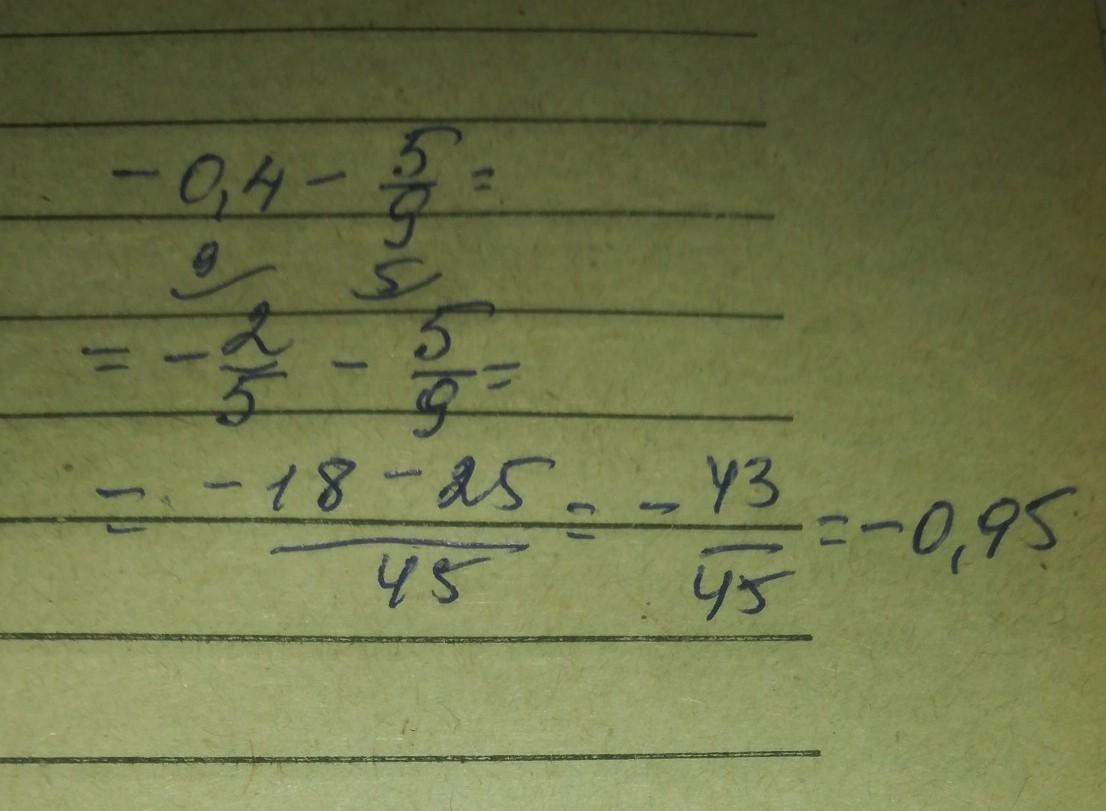 -0,4 - 5/9 =
9 5
= - 2/5 - 5/9 =
= -18 - 25/45 = - 43/45 = -0,95